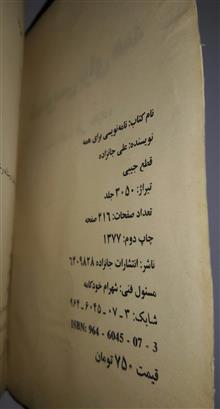 نام کتاب: نامه‌نویسی برای همه
نویسنده: علی جانزاده
قطع جیبی
تیراژ: ۳۰۵۰ جلد
تعداد صفحات: ۲۱۶ صفحه
چاپ دوم: ۱۳۷۷
ناشر: انتشارات جانزاده ۶۲۰۹۸۲۸
مسئول فنی: شهرام خودکامه
شابک: ۳ - ۰۷ - ۶۰۴۵ - ۹۶۴
ISBN: 964 - 6045 - 07 - 3
قیمت ۷۵۰ تومان